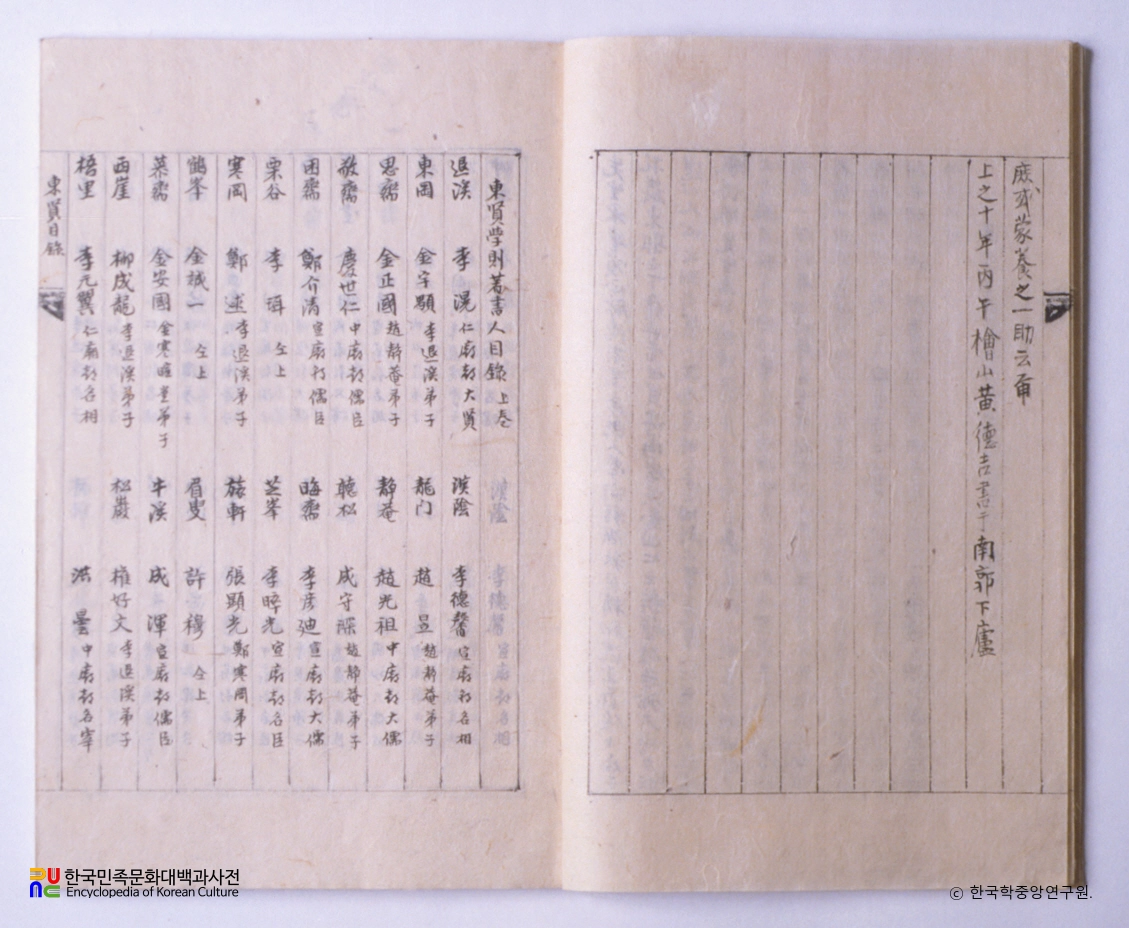 庶或蒙養之一助云甭
上之十年丙午檜山黃德吉書于南郭下廬
東賢学則著書人目錄 上卷
退溪 李滉 仁廟朝大賢 漢陰 李德馨 宣廟朝名相
東岡 金宇顒 李退溪弟子 龍门 趙昱 趙靜菴弟子
思齋 金正國 趙靜菴弟子 靜菴 趙光祖 中廟朝大儒
敬齋 慶世仁 中廟朝儒臣 聽松 成守琛 趙靜菴弟子
困齋 鄭介清 宣廟朝儒臣 晦齋 李彦迪 宣廟朝大儒
栗谷 李珥 仝上 芝峯 李睟光 宣廟朝名臣
寒岡 鄭逑 李退溪弟子 旅軒 張顯光 鄭寒岡弟子
鶴峯 金誠一 仝上 眉叟 許穆 仝上
慕齋 金安國 金寒暄堂弟子 牛溪 成渾 宣廟朝儒臣
西崖 柳成龍 李退溪弟子 松巖 權好文 李退溪弟子
梧里 李元翼 仁廟朝名相 洪曇 中廟朝名宰
東賢目錄
한국민족문화대백과사전
Encyclopedia of Korean Culture
ⓒ 한국학중앙연구원.